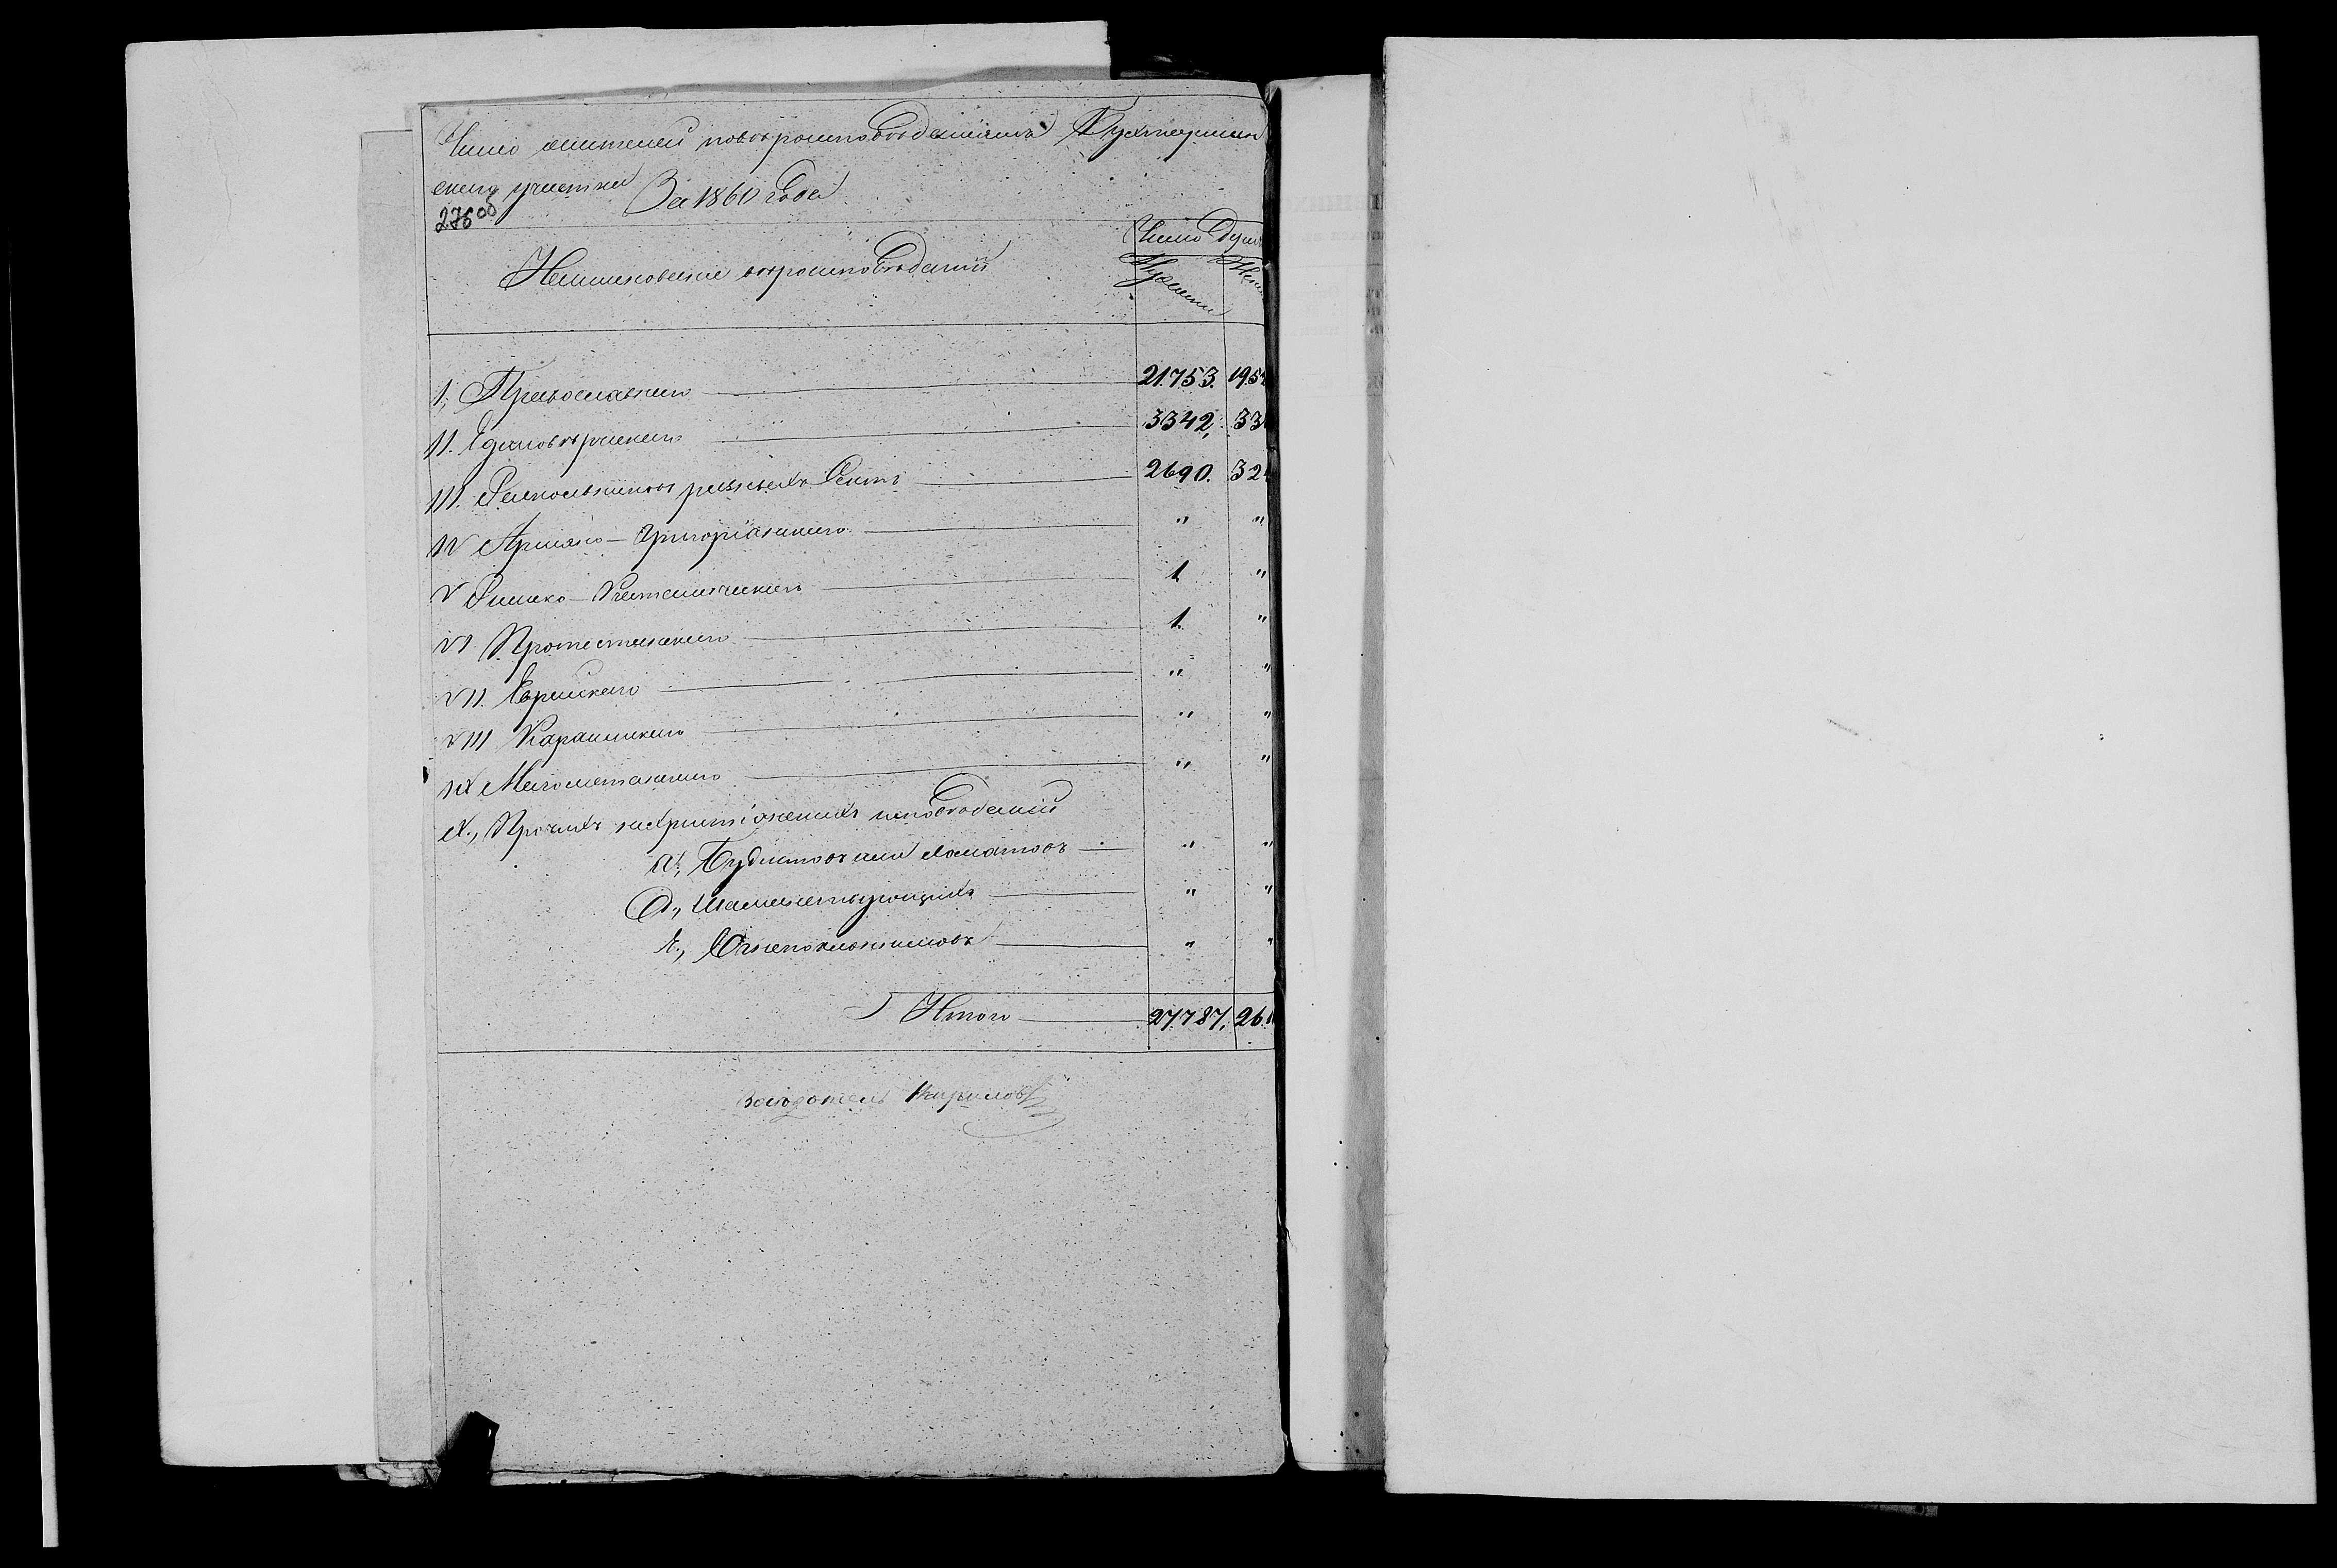 Число жителей по вѣроисповѣданіямъ Бухтармин
скаго участка За 1860 годъ
276 об
Наименованіе вѣроисповѣданій Число Душъ
Мужеска Жен
I, Православнаго 21.753. 195
II. Единовѣрческаго 3342, 33
III. Раскольниковъ разныхъ Сектъ 2690. 32
IV Армяно-Григоріанскаго " "
V Римско-Католическаго 1 "
VI. Протестанскаго 1. "
VII. Еврейскаго " "
VIII Караимскаго " "
IX Магометанскаго " "
X., Прочихъ нехристіанскихъ исповѣданій
А., Будистовъ или Ламаитовъ " "
Б., Шаманствующихъ " "
В., Огнепоклонниковъ " "
Итого 27.787, 26
Засѣдатель